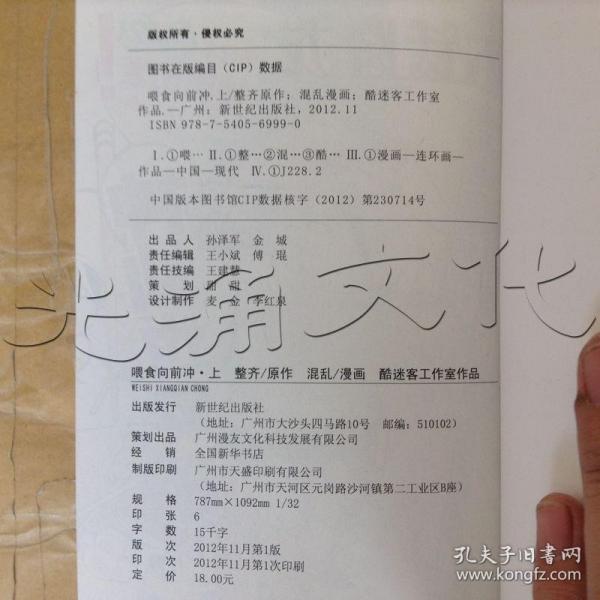 版权所有·侵权必究
图书在版编目（CIP）数据
喂食向前冲.上/整齐原作；混乱漫画；酷迷客工作室
作品.—广州：新世纪出版社，2012.11
ISBN 978-7-5405-6999-0
Ⅰ.①喂… Ⅱ.①整…②混…③酷… Ⅲ.①漫画—连环画—
作品—中国—现代 Ⅳ.①J228.2
中国版本图书馆CIP数据核字（2012）第230714号
出品人 孙泽军 金城
责任编辑 王小斌 傅琨
责任技编 王建慧
策划 甜甜
设计制作 麦金 李红泉
光涌文化
喂食向前冲·上 整齐/原作 混乱/漫画 酷迷客工作室作品
WEISHI XIANGQIAN CHONG
出版发行 新世纪出版社
（地址：广州市大沙头四马路10号 邮编：510102）
策划出品 广州漫友文化科技发展有限公司
经销 全国新华书店
制版印刷 广州市天盛印刷有限公司
（地址：广州市天河区元岗路沙河镇第二工业区B座）
规格 787mm×1092mm 1/32
印张 6
字数 15千字
版次 2012年11月第1版
印次 2012年11月第1次印刷
定价 18.00元
孔夫子旧书网
www.kongfz.com